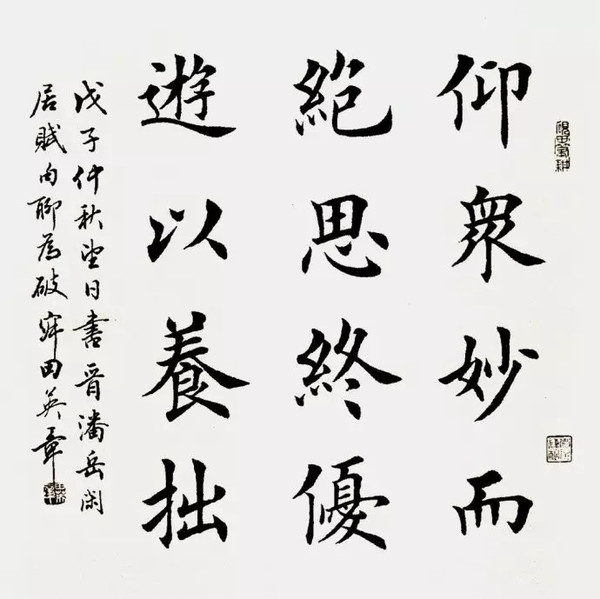 仰眾妙而
絶思終優
遊以養拙
戊子仲秋望日書晉潘岳閑
居賦句聊為破寂田英章